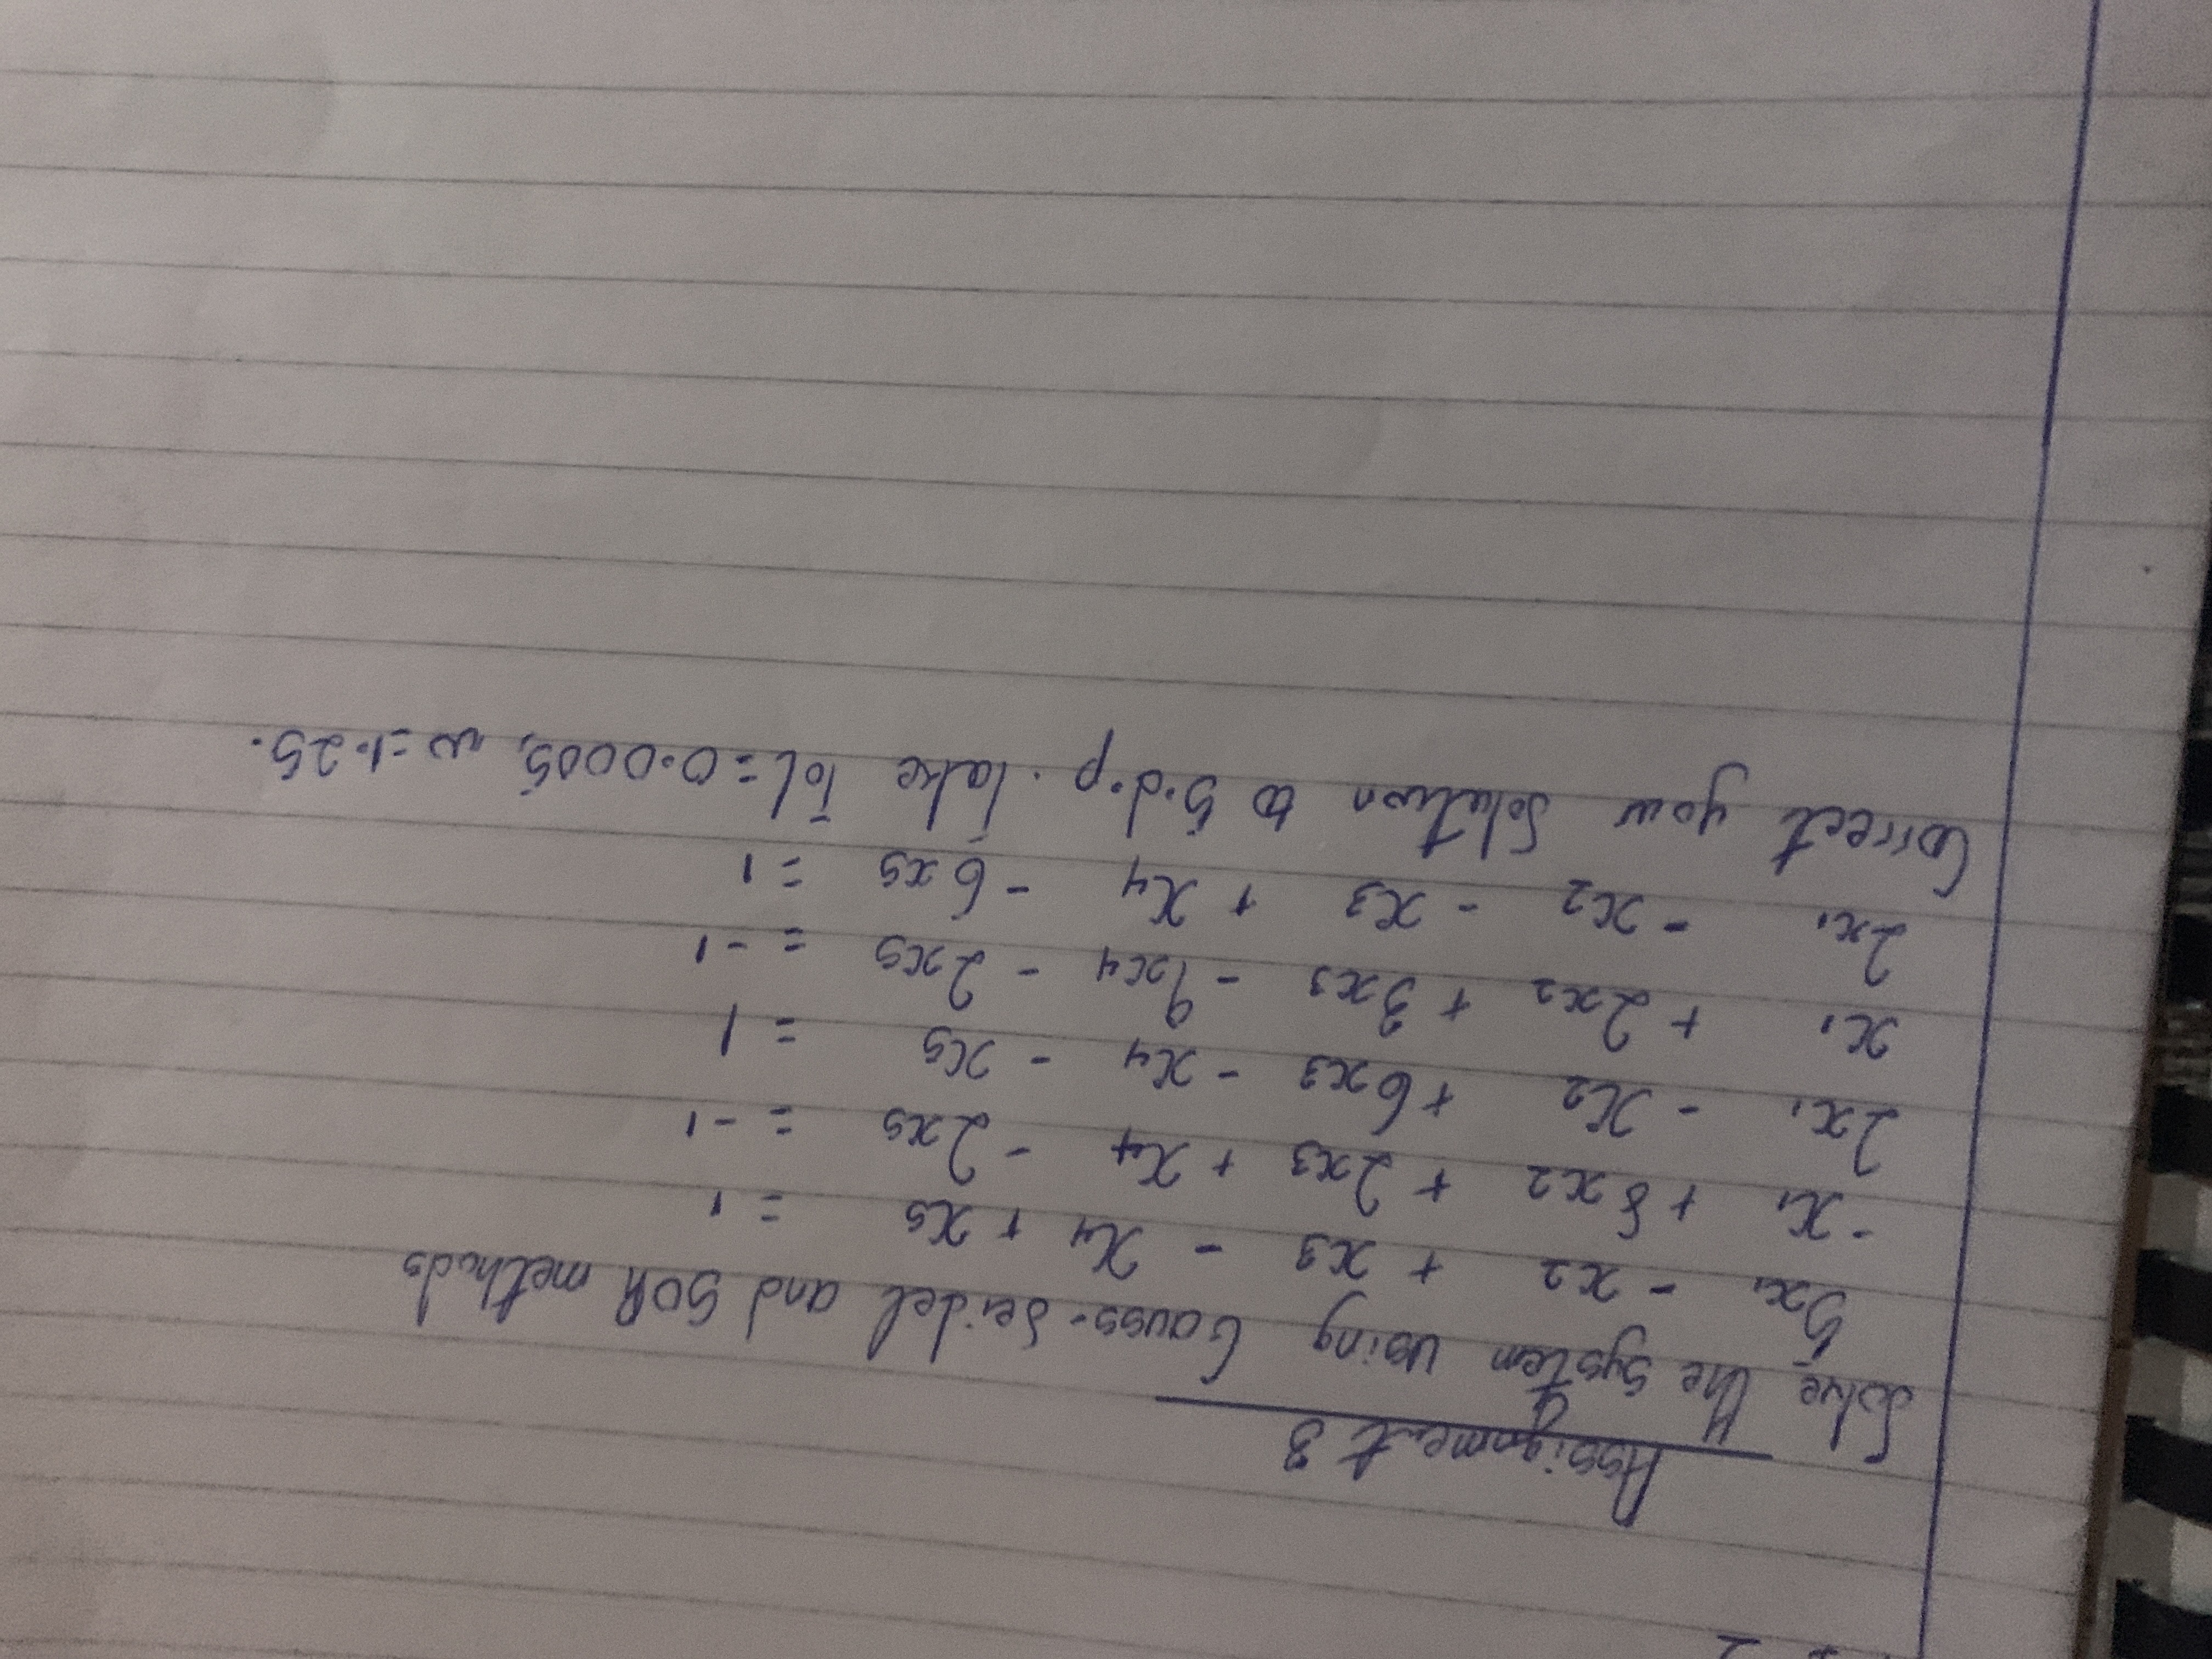 Assignment 3
Solve the system using Gauss-Seidel and SOR methods
5x₁ - x₂ + x₃ - x₄ + x₅ = 1
-x₁ + 8x₂ + 2x₃ + x₄ - 2x₅ = -1
2x₁ - x₂ + 6x₃ - x₄ - x₅ = 1
x₁ + 2x₂ + 3x₃ - 9x₄ - 2x₅ = -1
2x₁ - x₂ - x₃ + x₄ - 6x₅ = 1
Correct your solution to 5.d.p. Take TOL = 0.0005, w = 1.25.